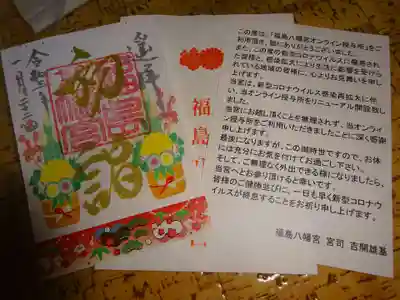 遥拝
初詣
令和
福島八
この度は、『福島八幡宮オンライン授与所』をご
利用頂き、誠にありがとうございました。
また、この度の新型コロナウイルスに罹患され
た皆様と、感染拡大により生活に影響を受けら
れている地域の皆様に、心よりお見舞いを申し
上げます。
当宮は、新型コロナウイルス感染再拡大に伴
い、当オンライン授与所をリニューアル開設致し
ました。
当宮にお越し頂くことを無理されず、当オンライ
ン授与所をご利用いただきましたことに深く感謝
申し上げます。
最後になりますが、この御時世ですので、お体
には充分にお気を付けてお過ごし下さい。
そして、ご無理なく外出できる様になりましたら、
当宮へとお参り頂けると幸いです。
皆様のご健勝並びに、一日も早く新型コロナウ
イルスが終息することをお祈り申し上げます。
福島八幡宮 宮司 吉開雄基